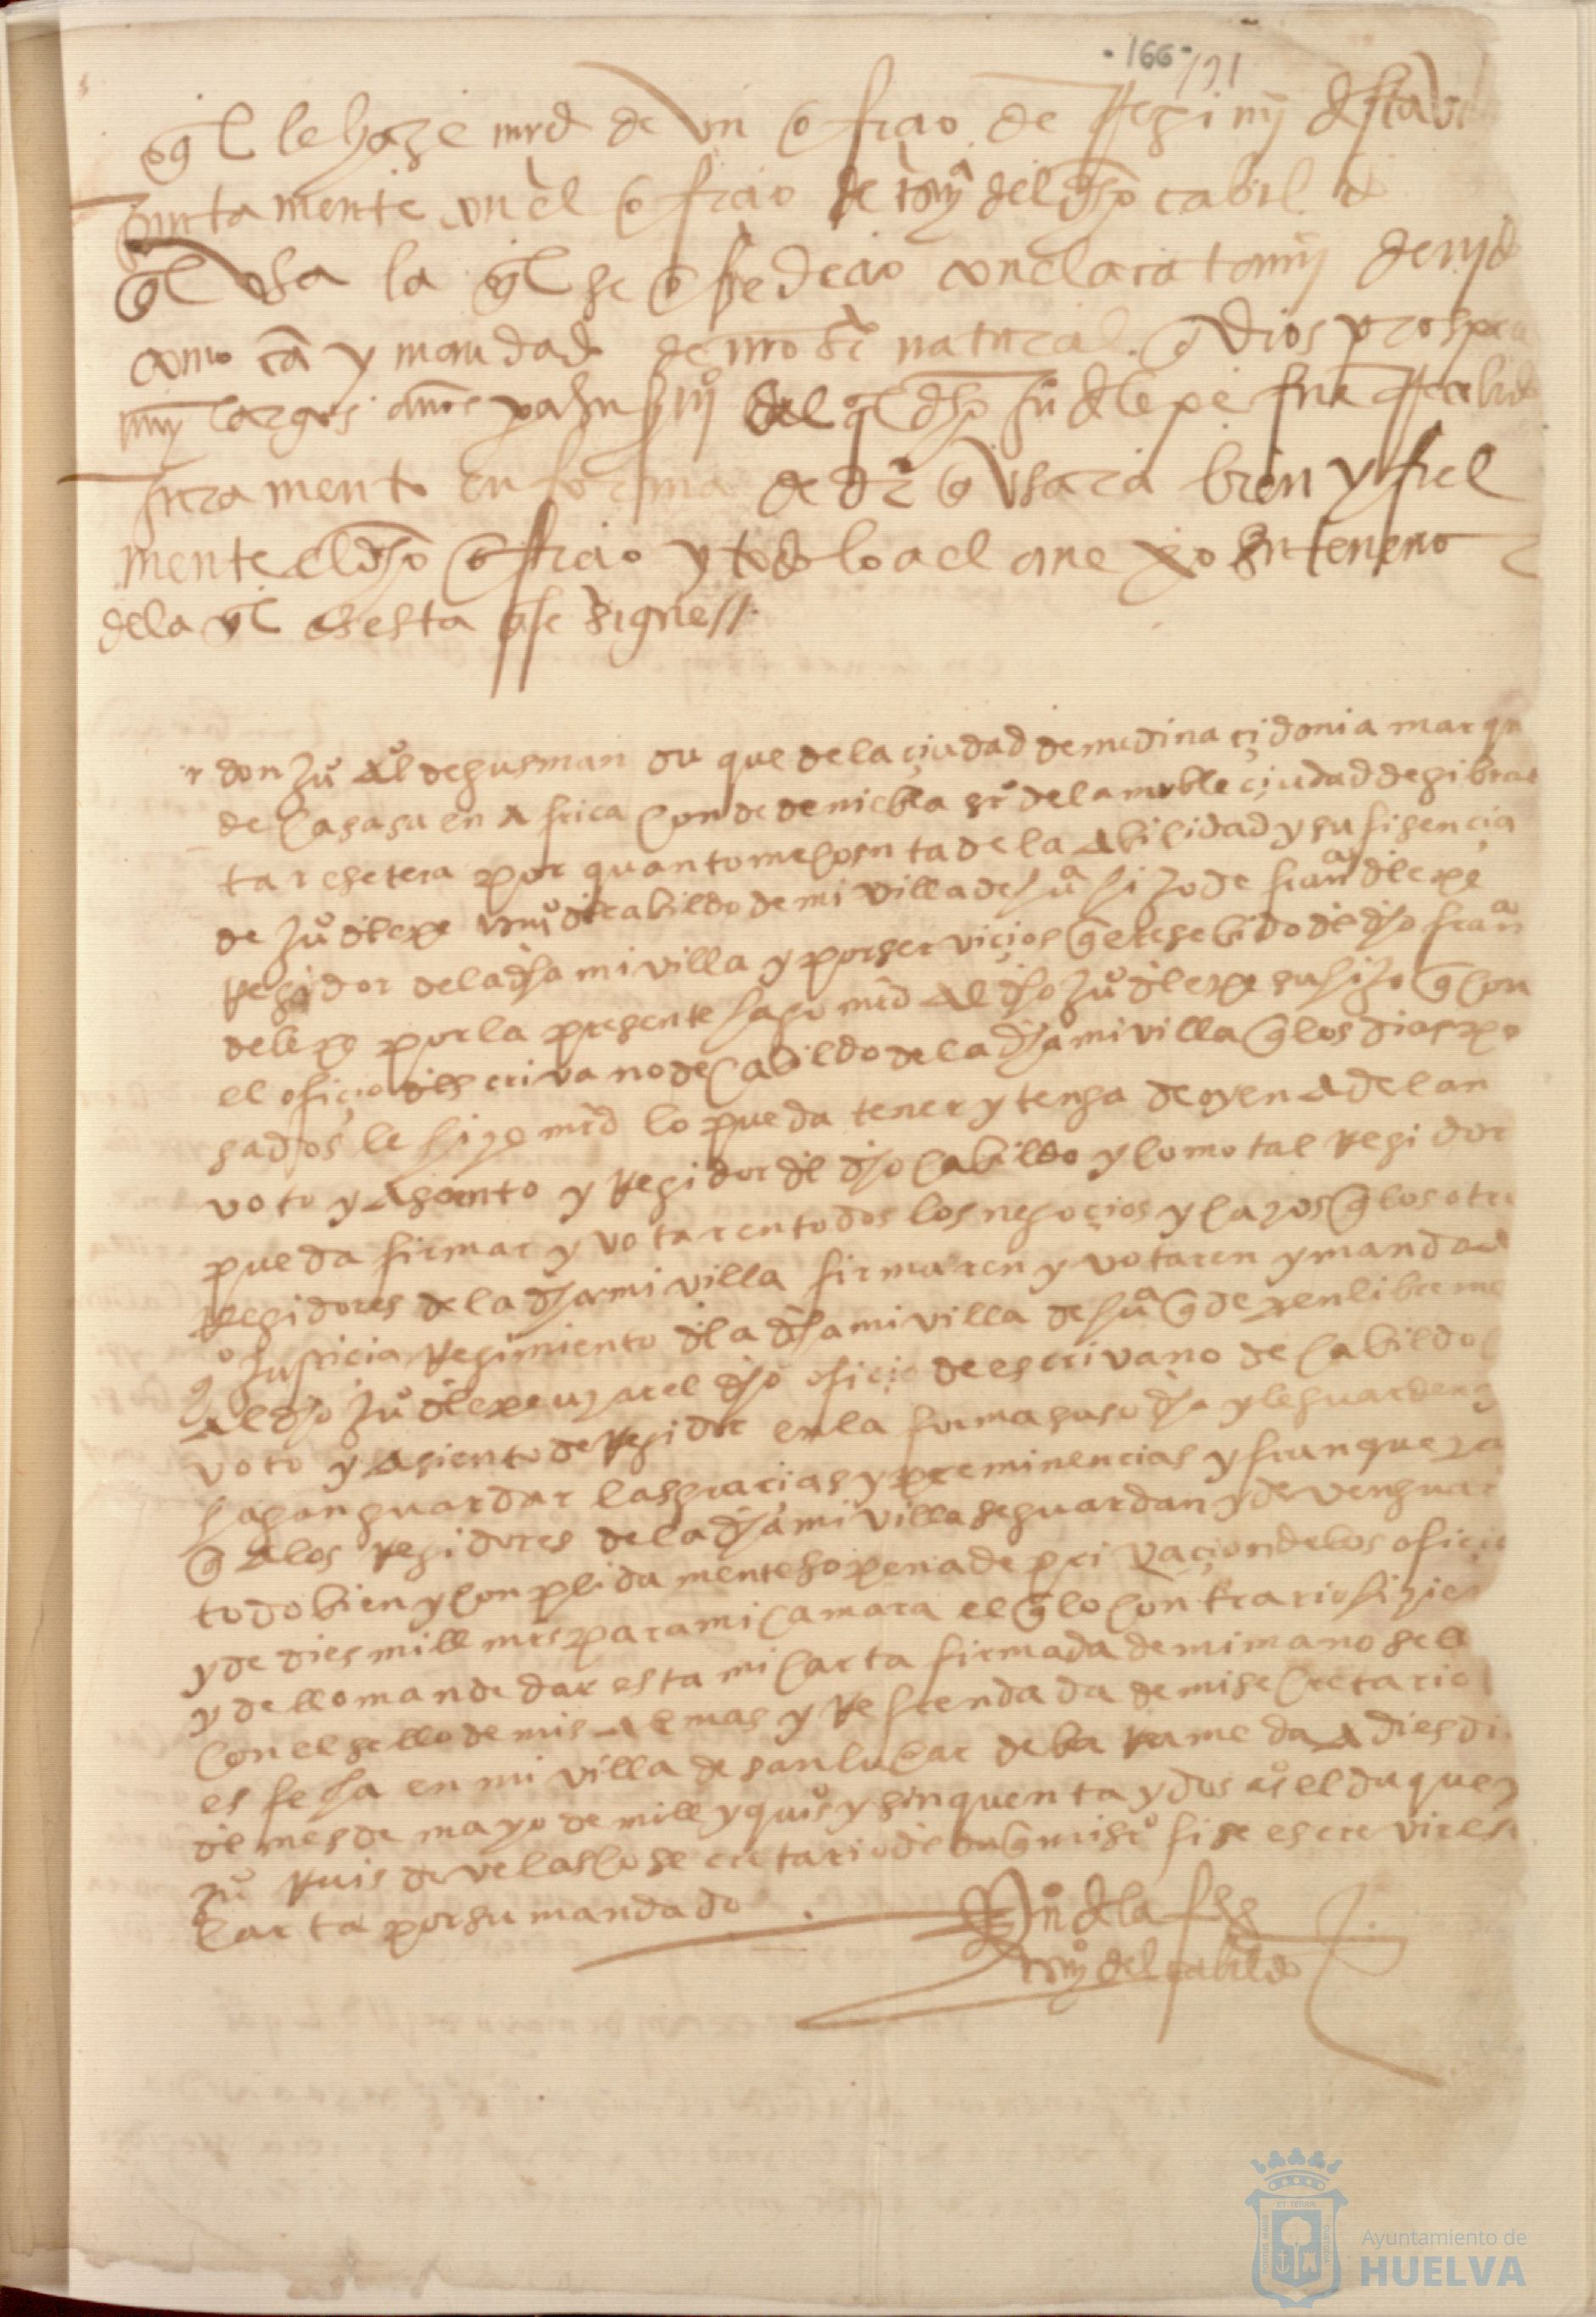 ·166· 191
q̃l le haze mrd de vn ofiçio de Regimj̃ dsta vi
Juntamente cn el ofiçio de escrnj̃ del dho cabil d
q̃l vsa la q̃l se ofreçio cn el acatamj̃ devid
como cã y mandado de nro sr natural q̃ dios prospera
mỹ largos años pa su sỹ del q̃l dho ju dlepe fue Recibido
Juramento en forma de dro q̃ vsara bien y fiel
mente el dho ofiçio y todo lo a el anexo su tenor
dela q̃l es esta q̃ se sigue //
don juº Al de gusman duque de la çiudad de medina çidonia marqu
de Casasa en Africa Conde de niebla sr de la noble çiudad de gibral
tar esetera por quanto me Consta de la Abilidad y sufisençia
de juº dlepe escrnº dl cabildo de mi villa de huª hijo de franª dlepe
Regidor de la dha mi villa y por serviçios q̃ e resebido dl dho franª
de lepe por la presente hago mrd Al dho juº dlepe su hijo q̃ Con
el ofiçio dl escrivano de Cabildo de la dha mi villa q̃ los dias pa
sados le hize mrd lo pueda tener y tenga de oy en Adelan
voto y Asiento y Regidor dl dho Cabildo y Como tal Regidor
pueda firmar y votar en todos los negoçios y Casos q̃ los otro
Regidores de la dha mi villa firmaren y votaren y mando al
qº Justicia Regimiento dla dha mi villa de huª q̃ dexen libreme
Al dho juº dlepe uzar el dho ofiçio de escrivano de Cabildo
voto y Asiento de Regidor en la forma suso dha y le guarden y
hagan guardar las graçias y preminencias y franqueza
q̃ A los Regidores de la dha mi villa se guardan y deven guar
todo bien y Conplidamente so pena de privaçion de los ofiçio
y de dies mill mrs para mi Camara el q̃ lo Contrario hizier
y dello mande dar esta mi Carta firmada de mi mano sella
Con el sello de mis Armas y Refrendada de mi secretario
es fecha en mi villa de sanlucar de barrameda A dies di
dl mes de mayo de mill y quisº y sinquenta y dos aºs el duque y
juº Ruis de velasco secretario dl duq̃ mi srº fise escrevir es
Carta por su mandado
escrnº del cabildo
Ayuntamiento de
HUELVA